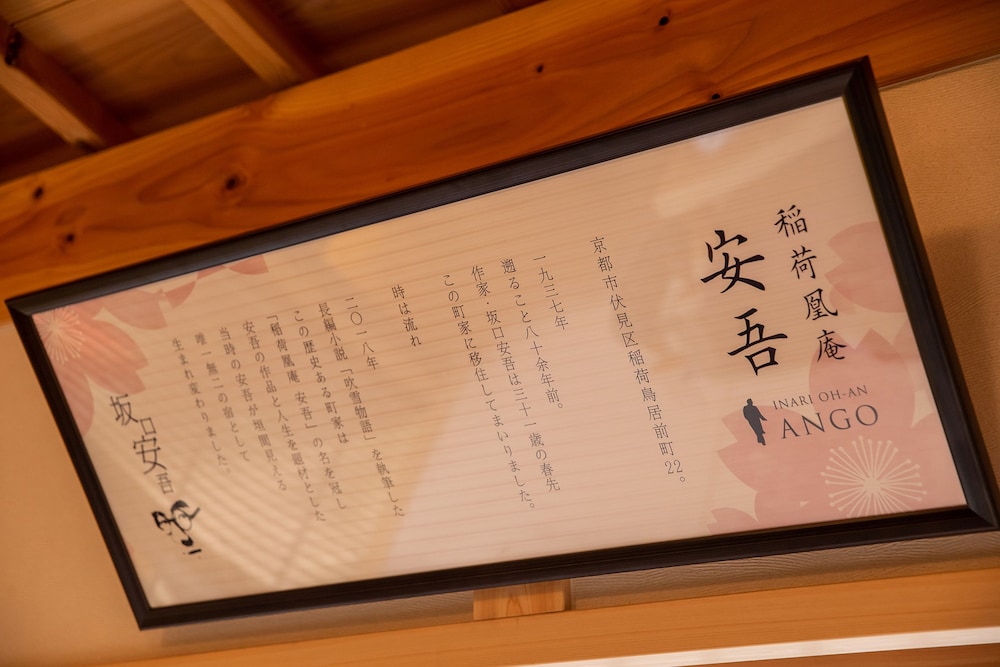 稲荷凰庵
安吾
INARI OH-AN
ANGO
京都市伏見区稲荷鳥居前町22。
一九三七年
遡ること八十余年前。
作家・坂口安吾は三十一歳の春先
この町家に移住してまいりました。
時は流れ
二〇一八年
長編小説「吹雪物語」を執筆した
この歴史ある町家は
「稲荷凰庵 安吾」の名を冠し
安吾の作品と人生を題材とした
当時の安吾が垣間見える
唯一無二の宿として
生まれ変わりました。
坂口安吾